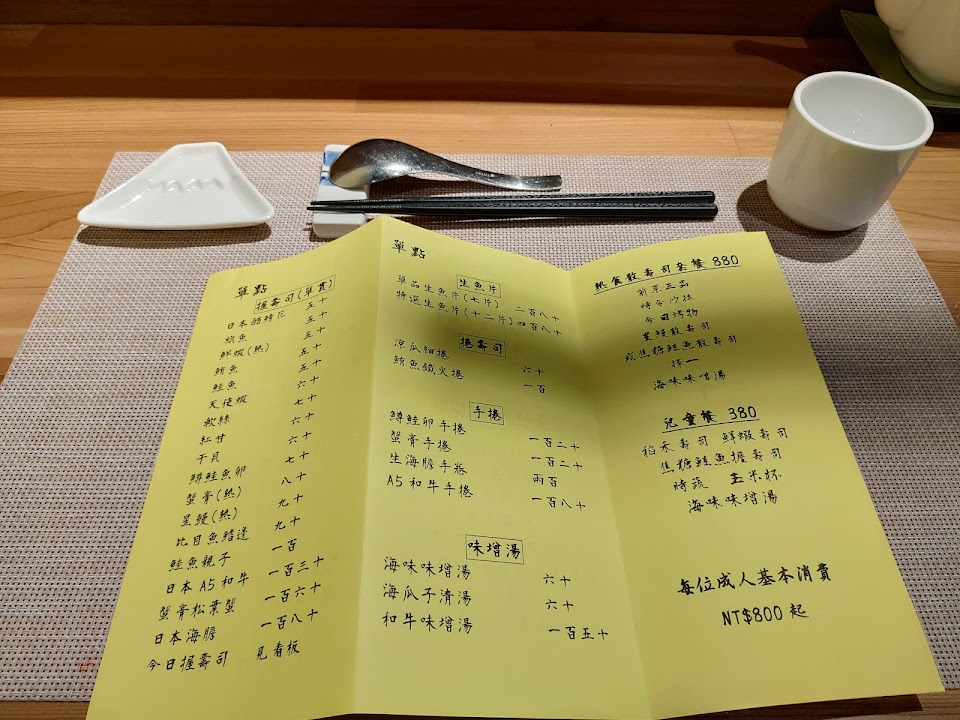 單點
握壽司(單貫)
日本醋精花 五十
旗魚 五十
鮮蝦(熟) 五十
鮪魚 五十
鮭魚 五十
天使蝦 六十
軟絲 七十
紅甘 六十
干貝 六十
鱒鮭魚卵 七十
蟹膏(熟) 八十
星鰻(熟) 九十
比目魚鰭邊 九十
鮭魚親子 一百
日本A5和牛 一百三十
蟹膏松葉蟹 一百六十
日本海膽 一百八十
今日握壽司 見看板
單點
生魚片
單品生魚片(七片) 二百八十
特選生魚片(十二片) 四百八十
捲壽司
涼瓜細捲 六十
鮪魚鐵火捲 一百
手捲
鱒鮭卵手捲 一百二十
蟹膏手捲 一百二十
生海膽手捲 兩百
A5和牛手捲 一百八十
味增湯
海味味增湯 六十
海瓜子清湯 六十
和牛味增湯 一百五十
熟食散壽司套餐 880
前菜三品
時令沙拉
今日烤物
星鰻散壽司
或焦糖鮭魚散壽司
擇一
海味味增湯
兒童餐 380
稻禾壽司 鮮蝦壽司
焦糖鮭魚握壽司
時蔬 玉米杯
海味味增湯
每位成人基本消費
NT$800起